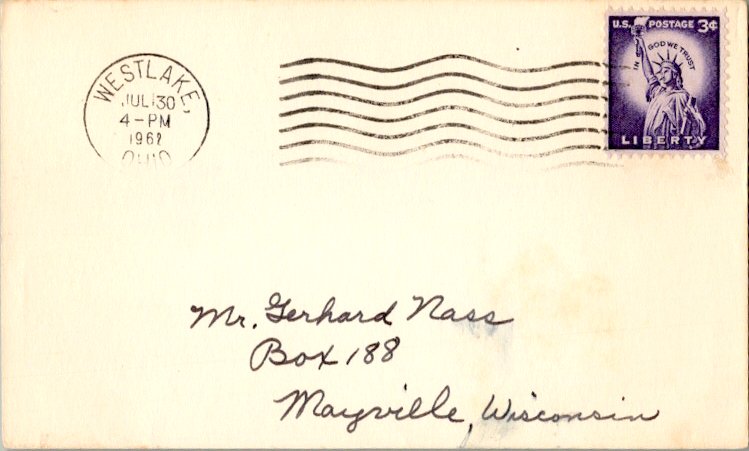 U.S. POSTAGE 3¢
IN GOD WE TRUST
LIBERTY
WESTLAKE,
JUL 30
4-PM
1962
OHIO
Mr. Gerhard Nass
Box 188
Mayville, Wisconsin